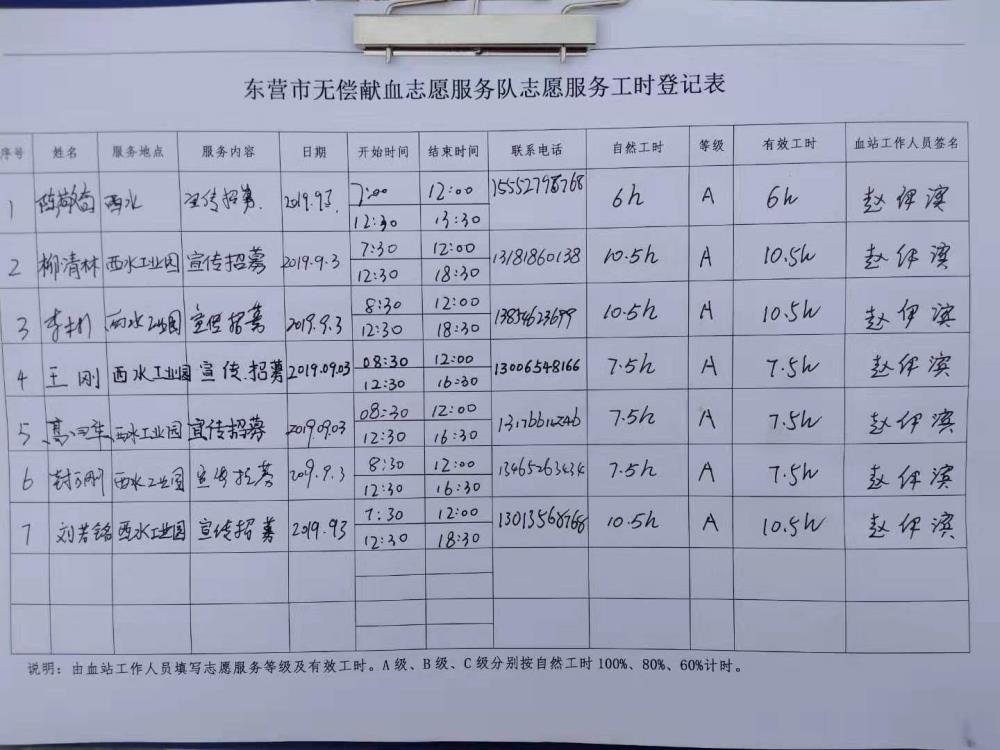 东营市无偿献血志愿服务队志愿服务工时登记表
序号 姓名 服务地点 服务内容 日期 开始时间 结束时间 联系电话 自然工时 等级 有效工时 血站工作人员签名
1 西水 宣传招募. 2019.9.3. 7:00 12:00 15552798768 6h A 6h 赵伊滨
12:30 13:30
2 柳清林 西水工业园 宣传招募 2019.9.3 7:30 12:00 13181860138 10.5h A 10.5h 赵伊滨
12:30 18:30
3 西水工业园 宣传招募 2019.9.3 8:30 12:00 13854623699 10.5h A 10.5h 赵伊滨
12:30 18:30
4 王刚 西水工业园 宣传.招募 2019.09.03 08:30 12:00 13006548166 7.5h A 7.5h 赵伊滨
12:30 16:30
5 西水工业园 宣传招募 2019.09.03 08:30 12:00 7.5h A 7.5h 赵伊滨
12:30 16:30
6 封万刚 西水工业园 宣传招募 2019.9.3 8:30 12:00 13465263434 7.5h A 7.5h 赵伊滨
12:30 16:30
7 刘若铭 西水工业园 宣传招募 2019.93 7:30 12:00 13013568768 10.5h A 10.5h 赵伊滨
12:30 18:30
说明：由血站工作人员填写志愿服务等级及有效工时。A级、B级、C级分别按自然工时100%、80%、60%计时。